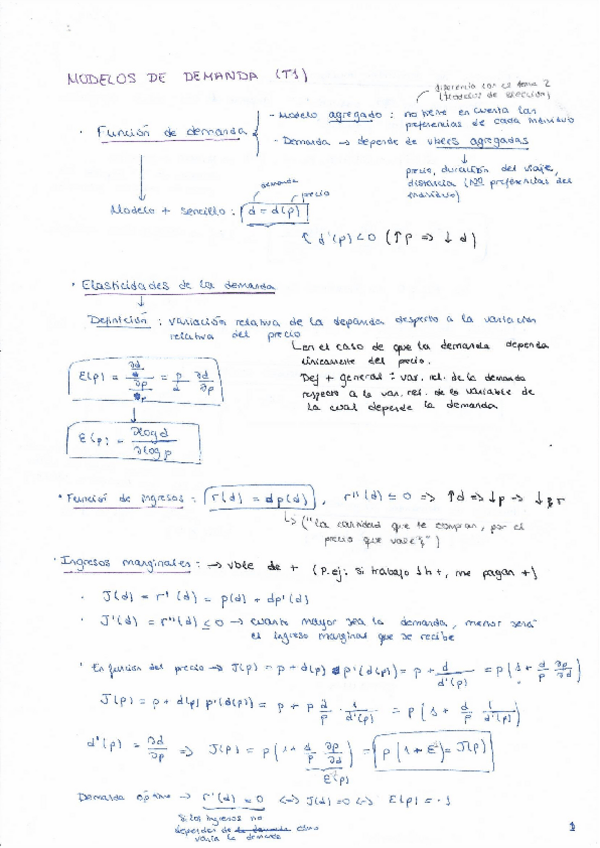 MODELOS DE DEMANDA (T1)
diferencia con el tema 2
(Modelos de elección)
· Función de demanda
- Modelo agregado : no tiene en cuenta las
preferencias de cada individuo
- Demanda → depende de vbles agregadas
precio, duración del viaje,
distancia (No preferencias del
individuo)
demanda
precio
Modelo + sencillo : d = d(p)
d'(p) < 0 (↑p => ↓ d)
· Elasticidades de la demanda
Definición : variación relativa de la demanda respecto a la variación
relativa del precio
en el caso de que la demanda dependa
únicamente del precio.
Def + general : var. rel. de la demanda
respecto a la var. rel. de la variable de
la cual depende la demanda
E(p) = (∂d/d)/(∂p/p) = p/d ∂d/∂p
E(p) = ∂log d/∂log p
· Función de ingresos : r(d) = dp(d) , r''(d) ≤ 0 => ↑d => ↓p => ↓ r
("la cantidad que te compran, por el
precio que vale")
· Ingresos marginales : → vble de + (P.ej: si trabajo 1h+, me pagan +)
· J(d) = r'(d) = p(d) + dp'(d)
· J'(d) = r''(d) ≤ 0 → cuanto mayor sea la demanda, menor será
el ingreso marginal que se recibe
· En función del precio → J(p) = p + d(p) p'(d(p)) = p + d/d'(p) = p(1 + d/p ∂p/∂d)
J(p) = p + d(p) p'(d(p)) = p + p d/p · 1/d'(p) = p(1 + d/p 1/d'(p))
d'(p) = ∂d/∂p => J(p) = p(1 + d/p ∂p/∂d) = p(1 + E⁻¹) = J(p)
E⁻¹(p)
Demanda óptima → r'(d) = 0 <-> J(d) = 0 <-> E(p) = -1
Si los ingresos no
dependen de
varía la demanda
1